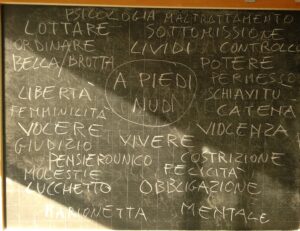 PSICOLOGIA MALTRATTAMENTO
LOTTARE SOTTOMISSIONE
ORDINARE LIVIDI CONTROLLO
BELLA/BRUTTA POTERE
A PIEDI PERMESSO
LIBERTA NUDI SCHIAVITU
FEMMINILITÀ CATENA
VOCERE VIOLENZA
GIUDIZIO VIVERE
PENSIERO UNICO COSTRIZIONE
MOLESTIE FELICITA'
LUCCHETTO OBBLIGAZIONE
MARIONETTA MENTALE